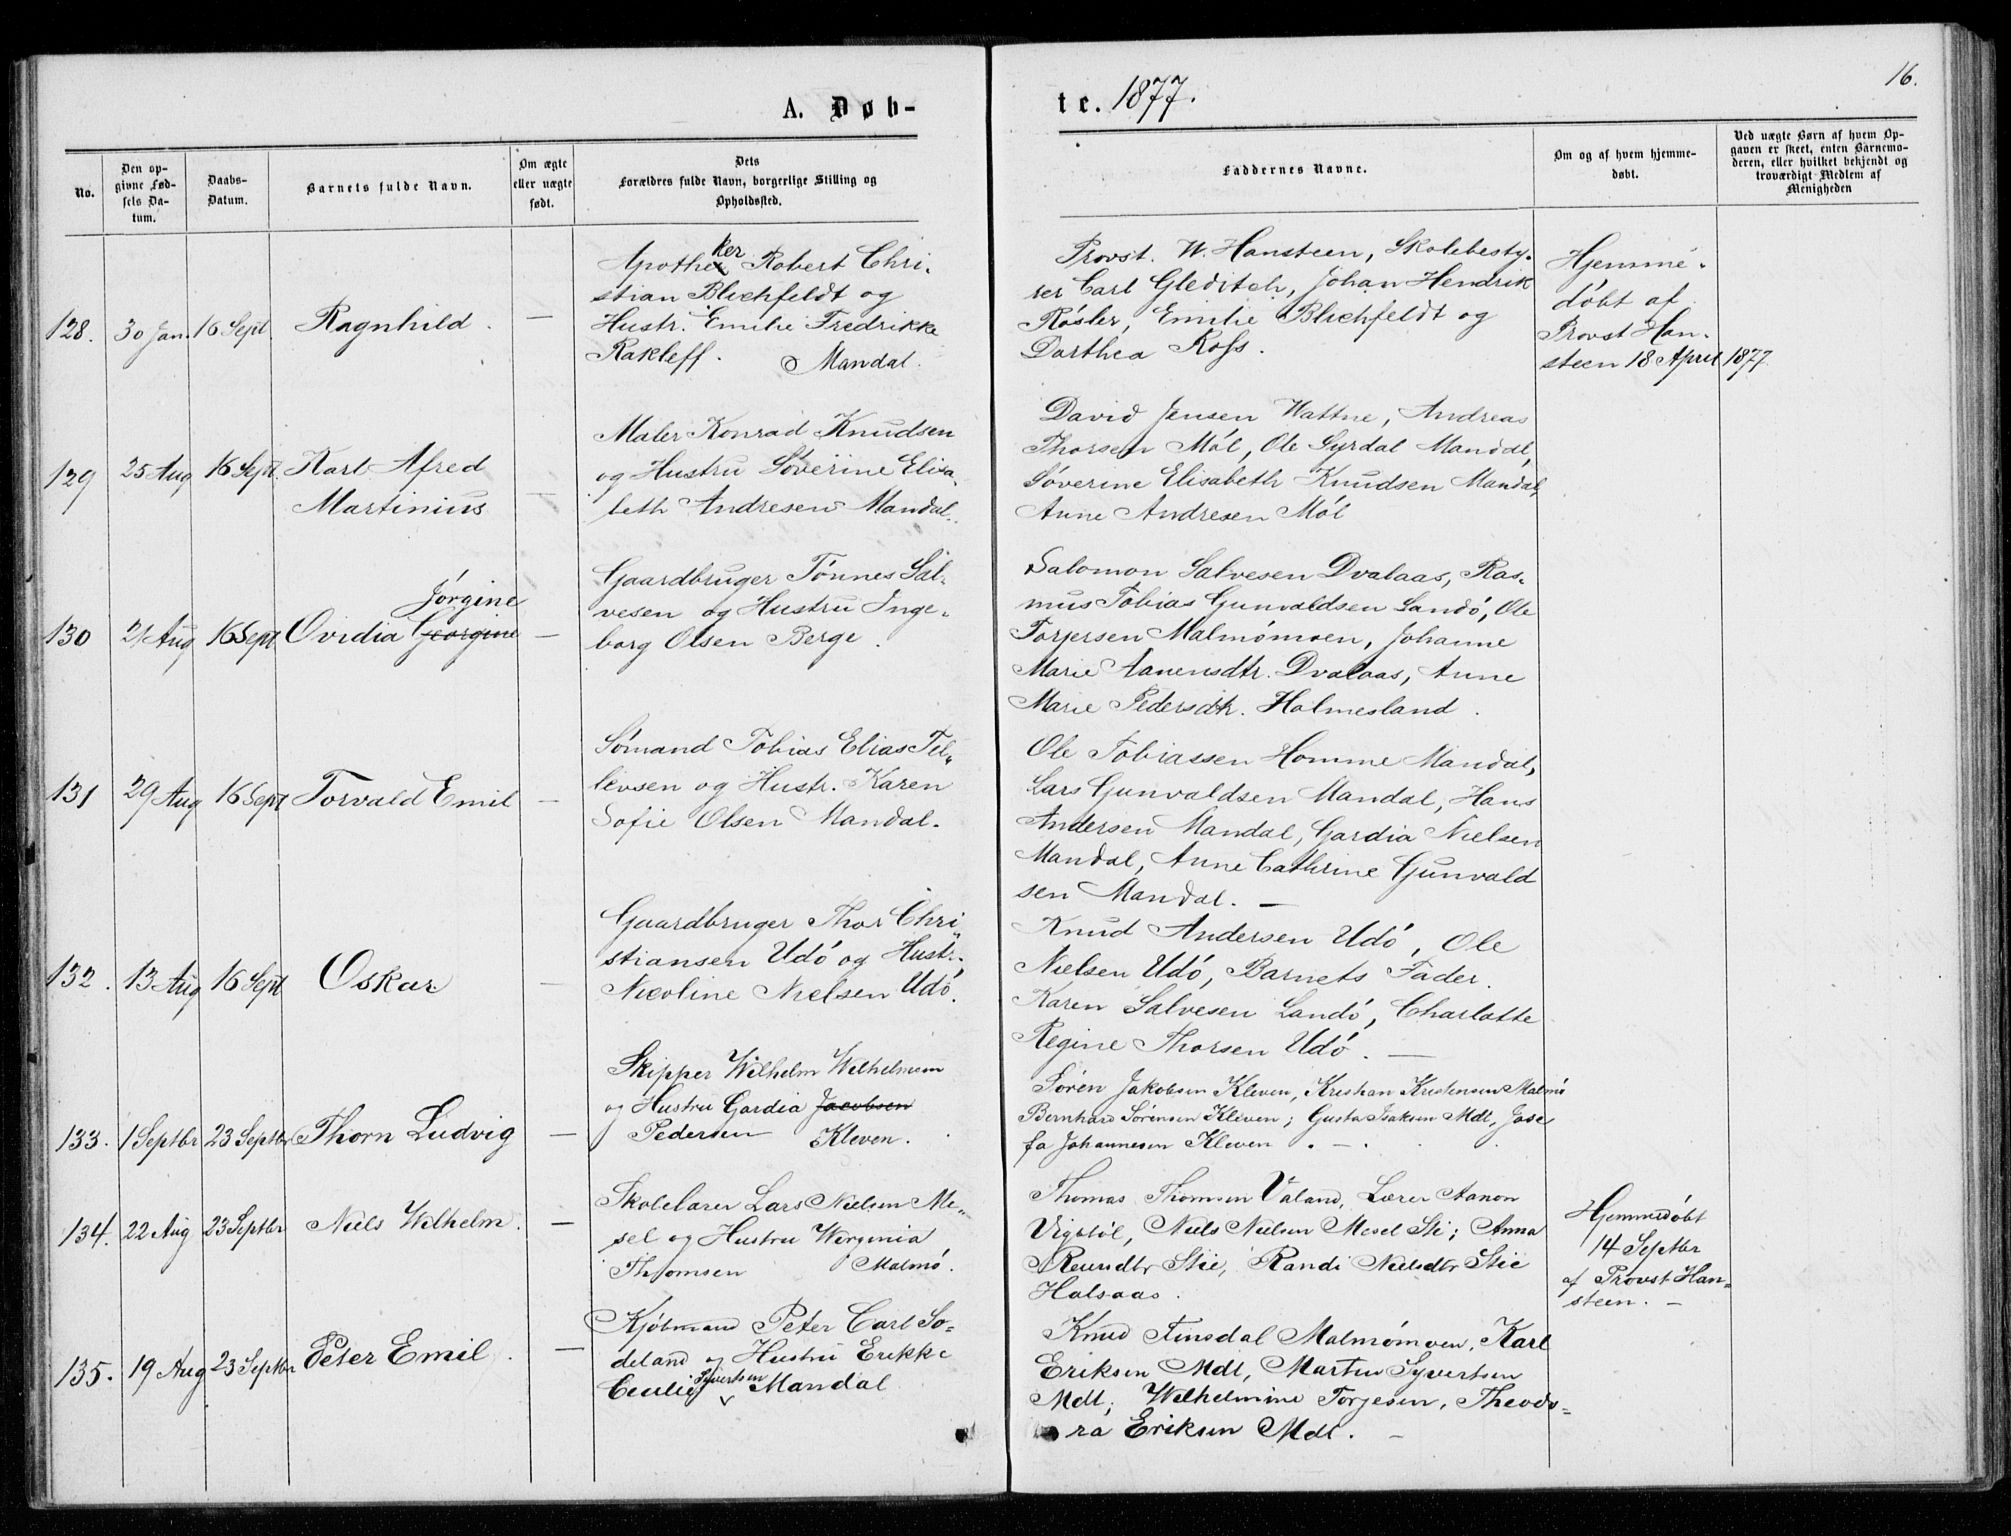 A. Døb-
te. 1877.
16.
No.
Den op-
givne Fød-
sels Da-
tum.
Daabs-
Datum.
Barnets fulde Navn.
Om ægte
eller uægte
født.
Dets
Forældres fulde Navn, borgerlige Stilling og
Opholdssted.
Faddernes Navne.
Om og af hvem hjemme-
døbt.
Ved uægte Børn af hvem Op-
gaven er skeet, enten Barnemo-
deren, eller hvilket bekjendt og
troværdigt Medlem af
Menigheden
128. 30 Jan. 16 Sept. Ragnhild. —
Apotheker Robert Chri-
stian Blichfeldt og
Hustr. Emilie Fredrikke
Rakleff. Mandal.
Provst. W. Hansteen, Skolebesty-
rer Carl Gleditch, Johan Hendrik
Røsler, Emilie Blichfeldt og
Dorthea Ross.
Hjemme-
døbt af
Provst Han-
steen 18 April 1877
129 25 Aug 16 Sept. Karl Afred
Martinius —
Maler Konrad Knudsen
og Hustru Søverine Elisa-
beth Andresen Mandal.
David Jensen Hattne, Andreas
Thorsen Møl, Ole Gyrdal Mandal,
Søverine Elisabeth Knudsen Mandal,
Anne Andresen Møl
130 21 Aug 16 Sept Ovidia Georgine —
Jørgine
Gaardbruger Tønnes Sal-
vesen og Hustru Inge-
borg Olsen Berge.
Salomon Salvesen Dvalaas, Ras-
mus Tobias Gunvaldsen Landø, Ole
Torjersen Malmømoen, Johanne
Marie Aanensdtr. Dvalaas, Anne
Marie Pedersdtr. Holmesland.
131 29 Aug 16 Sept Torvald Emil —
Sømand Tobias Elias Tel-
levsen og Hustr. Karen
Sofie Olsen Mandal.
Ole Tobiassen Homme Mandal,
Lars Gunvaldsen Mandal, Hans
Andersen Mandal, Gardia Nielsen
Mandal, Anne Cathrine Gunvald
sen Mandal. —
132. 13 Aug 16 Sept Oskar —
Gaardbruger Thor Chri-
stiansen Udø og Hustr.
Nicoline Nielsen Udø.
Knud Andersen Udø, Ole
Nielsen Udø, Barnets Fader.
Karen Salvesen Landø, Charlotte
Regine Thorsen Udø. —
133. 1 Septbr 23 Septbr Thorn Ludvig —
Skipper Wilhelm Wilhelmsen
og Hustru Gardia Jacobsen
Pedersen Kleven.
Søren Jakobsen Kleven, Kristian Kristensen Malmø
Bernhard Sørensen Kleven; Gusta Isaksen Mdl, Jose
fa Johannesen Kleven. —
134. 22 Aug 23 Septbr Niels Wilhelm. —
Skolelærer Lars Nielsen Me-
sel og Hustru Werginia
Thomsen Malmø.
Thomas Thomsen Valand, Lærer Aanon
Vigstøl, Niels Nielsen Mesel Sti; Anna
Reiersdtr Stie, Randi Nielsdtr Stie
Halsaas.
Hjemmedøbt
14 Septbr
af Provst Han-
steen. —
135. 19 Aug 23 Septbr Peter Emil. —
Kjøbmand Peter Carl So-
deland og Hustru Erikke
Cecilie Syvertsen Mandal
Knud Finsdal Malmømoen, Karl
Eriksen Mdl, Martin Syvertsen
Mdl; Wilhelmine Torjesen, Theodo-
ra Eriksen Mdl. —